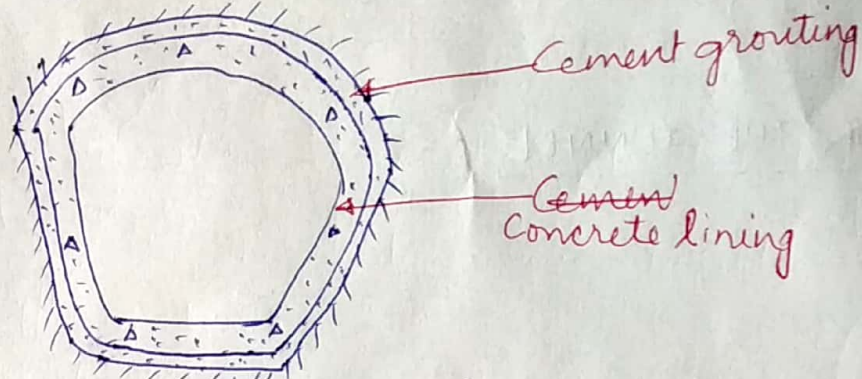 Cement grouting
Cemen
Concrete lining